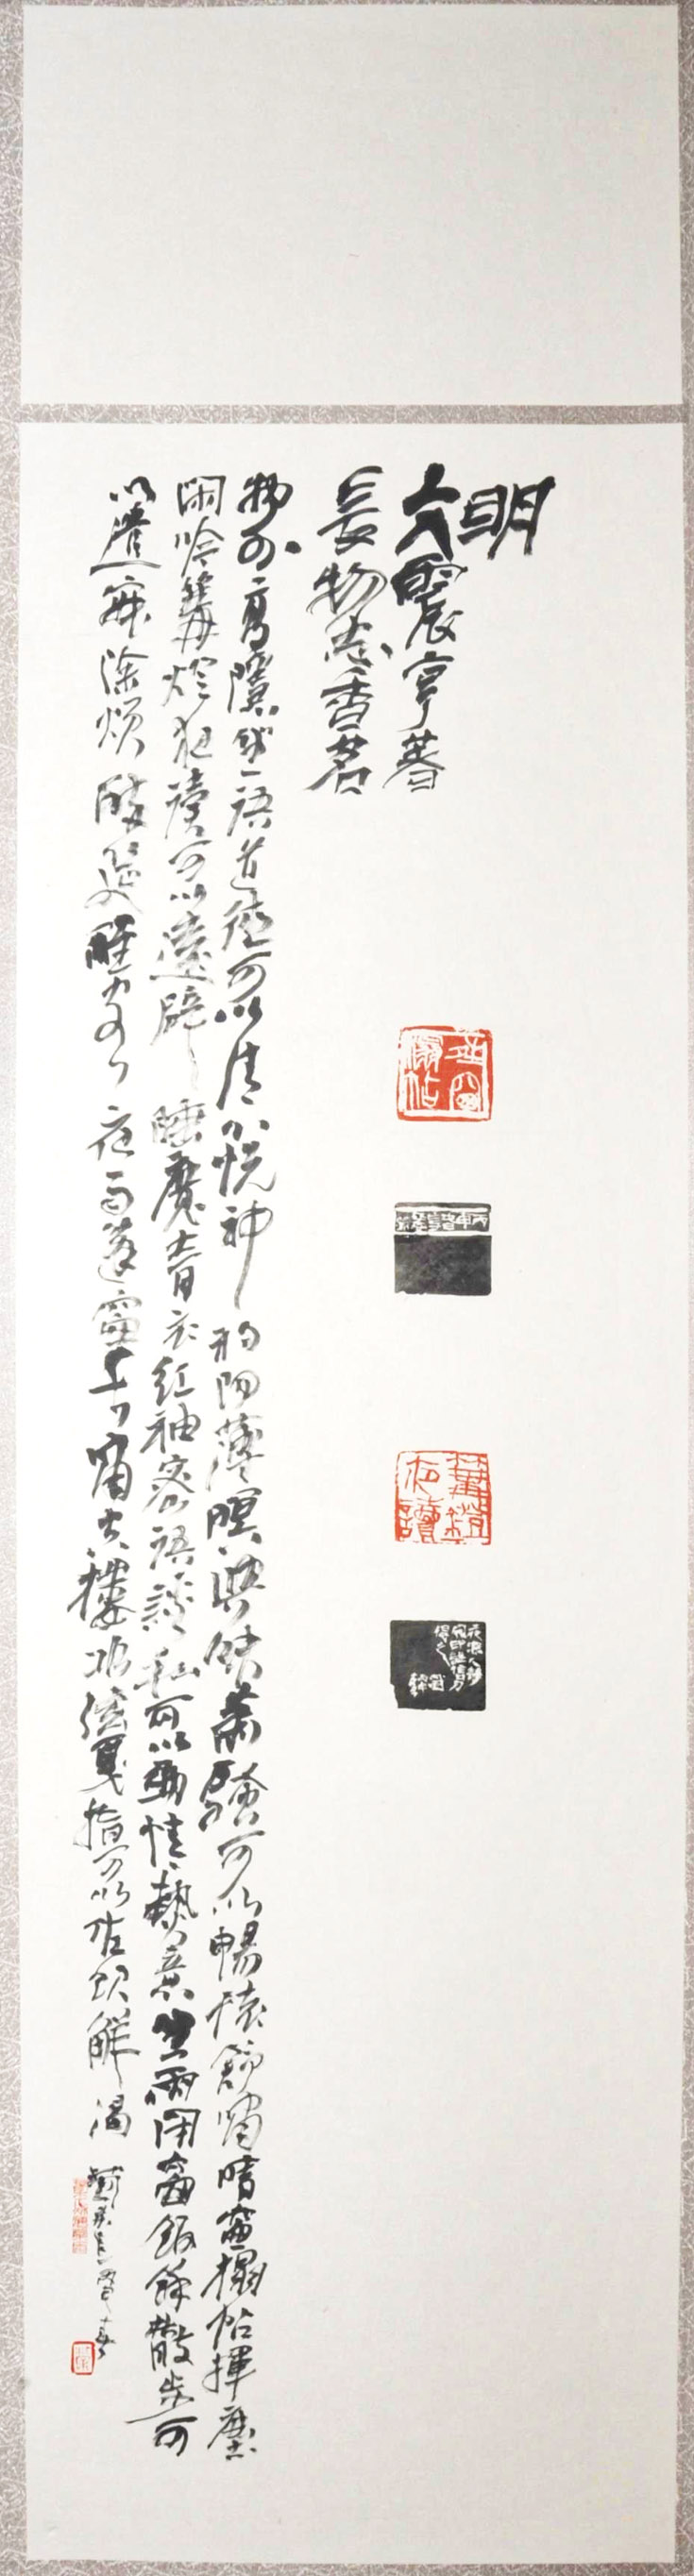 明
文震亨著
長物志香茗
晴窗搨帖
篝燈夜讀
物外高隱坐語道德可以清心悅神初陽薄暝興味蕭騷可以暢懷舒嘯晴窗搨帖揮麈
閑吟篝燈夜讀可以遠辟睡魔青衣紅袖密語談私可以助情熱意坐雨閉窗飯餘散步可
以遣寂除煩醉筵醒客夜雨蓬窗長嘯空樓冰弦戛指可以佐歡解渴